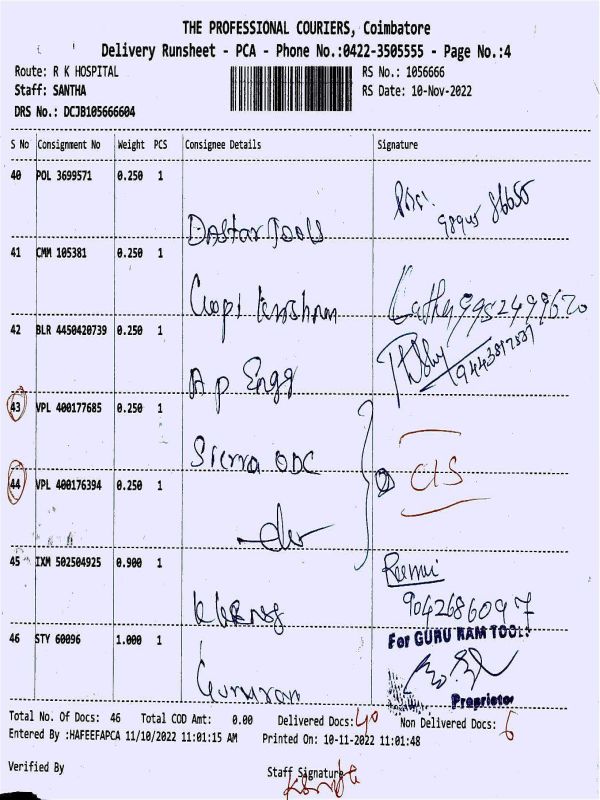 THE PROFESSIONAL COURIERS, Coimbatore
Delivery Runsheet - PCA - Phone No.:0422-3505555 - Page No.:4
Route: R K HOSPITAL RS No.: 1056666
Staff: SANTHA RS Date: 10-Nov-2022
DRS No.: DCJB105666604
S No Consignment No Weight PCS Consignee Details Signature
40 POL 3699571 0.250 1
DAStar Tools
41 CMM 105381 0.250 1
Gopi Krishnan 9952499620
42 BLR 4450420739 0.250 1
A p Engg
43 VPL 400177685 0.250 1
Sierra ODC
44 VPL 400176394 0.250 1
45 IXM 502504925 0.900 1
9042686097
46 STY 60096 1.000 1
For GURU RAM TOOLS
Proprietor
Total No. Of Docs: 46 Total COD Amt: 0.00 Delivered Docs: 40 Non Delivered Docs: 6
Entered By :HAFEEFAPCA 11/10/2022 11:01:15 AM Printed On: 10-11-2022 11:01:48
Verified By Staff Signature